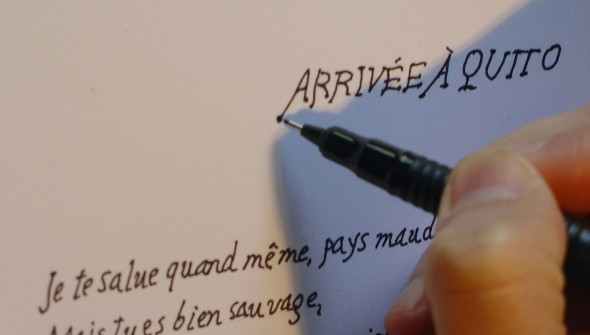 ARRIVÉE À QUITO
Je te salue quand même, pays maud
Mais tu es bien sauvage,